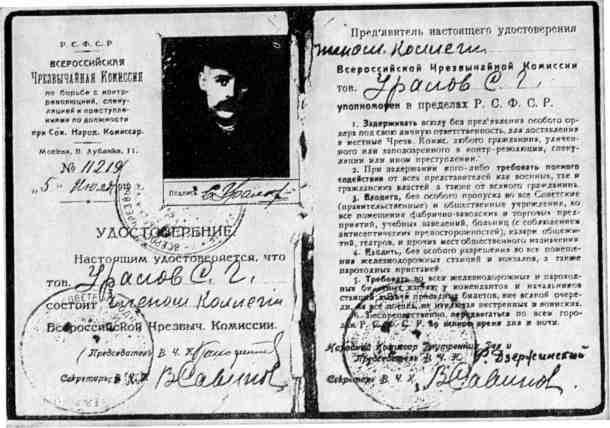 Р. С. Ф. С. Р
ВСЕРОССИЙСКАЯ
ЧРЕЗВЫЧАЙНАЯ КОМИССИЯ
по борьбе с контр-
революцией, спеку-
ляцией и преступле-
ниями по должности
при Сов. Народ. Комиссар.
Москва, Б. Лубянка, 11.
№ 11219
„5"
Подпись С. Уралов
УДОСТОВЕРЕНИЕ.
Настоящим удостоверяется, что
тов. Уралов С. Г.
состоит Членом Коллегии
Всероссийской Чрезвыч. Комиссии.
Председатель В. Ч. К.
Секретарь В. Ч. К. В Савинов
Пред'явитель настоящего удостоверения
Членом Коллегии
Всероссийской Чрезвычайной Комиссии
тов. Уралов С. Г.
уполномочен в пределах Р. С. Ф. С. Р.
1. Задерживать всюду без пред'явления особого ор-
дера под свою личную ответственность, для доставления
в местные Чрезв. Комис. любого гражданина, уличен-
ного или заподозренного в контр-революции, спеку-
ляции или ином преступлении.
2. При задержании кого-либо требовать полного
содействия от всех представителей как военных, так и
гражданских властей а также от всякого гражданина.
3. Входить, без особого пропуска во все Советские
(правительственные) и общественные учреждения, во
все помещения фабрично-заводских и торговых пред-
приятий, учебных заведений, больниц (с соблюдением
антисептических предосторожностей), казарм общежи-
тий, театров, и прочих мест общественного назначения
4. Входить, без особого разрешения во все помеще-
ния железнодорожных станций и вокзалов, а также
пароходных пристаней.
5. Требовать во всех железнодорожных и пароход-
ных кассах, у комендантов и начальников
станций билетов, вне всякой очере-
ди, на все поезда, не исключая экстренных и воинских.
6. Беспрепятственно передвигаться по всем горо-
дам Р. С. Ф. С. Р. во всякое время дня и ночи.
Народный Комиссар Внутренних Дел и
Председатель В. Ч. К. Ф. Дзержинский
Секретарь В. Ч. К. В Савинов